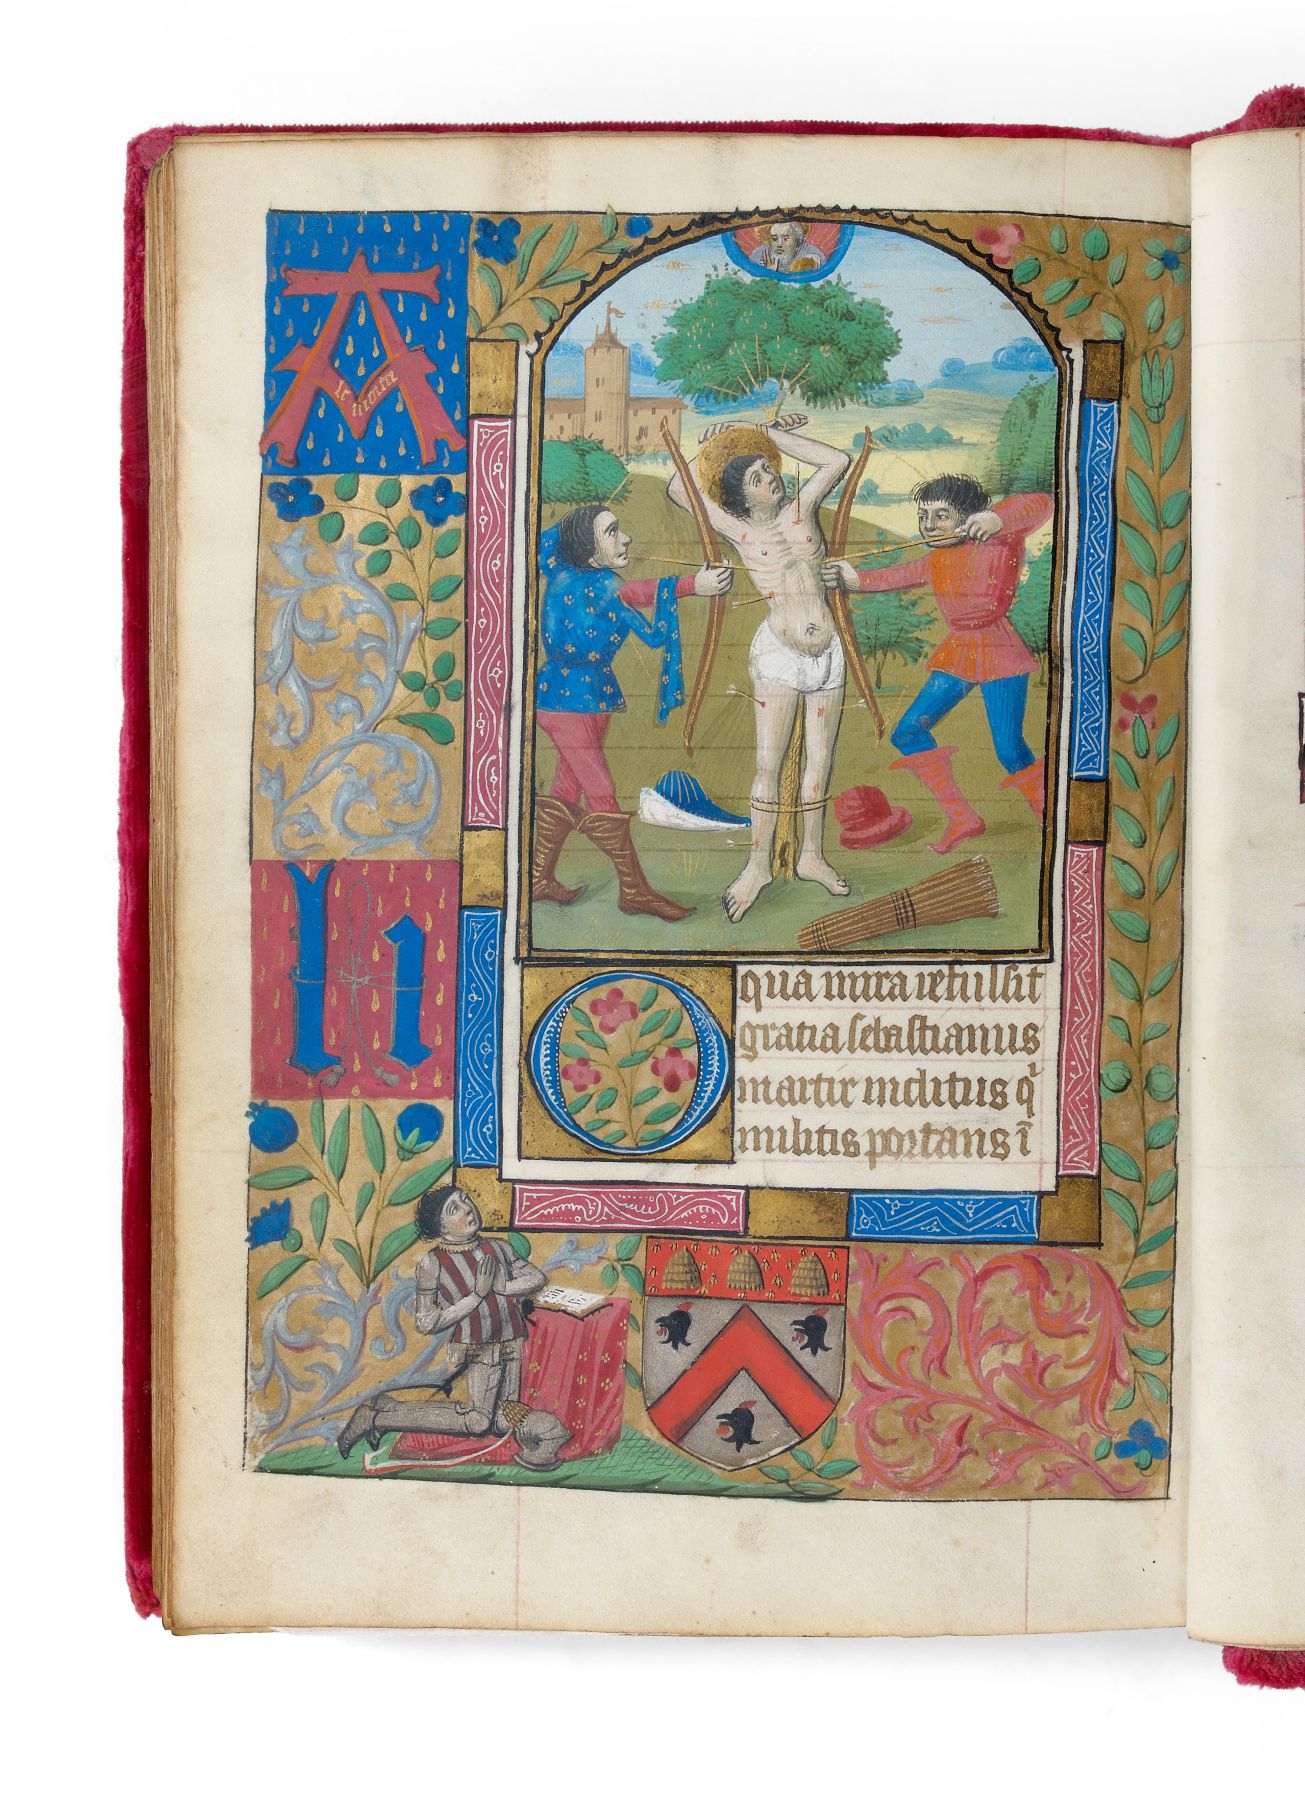 A
O
qua mira refulsit
gratia sebastianus
martir inclitus q̄
militis portans ī